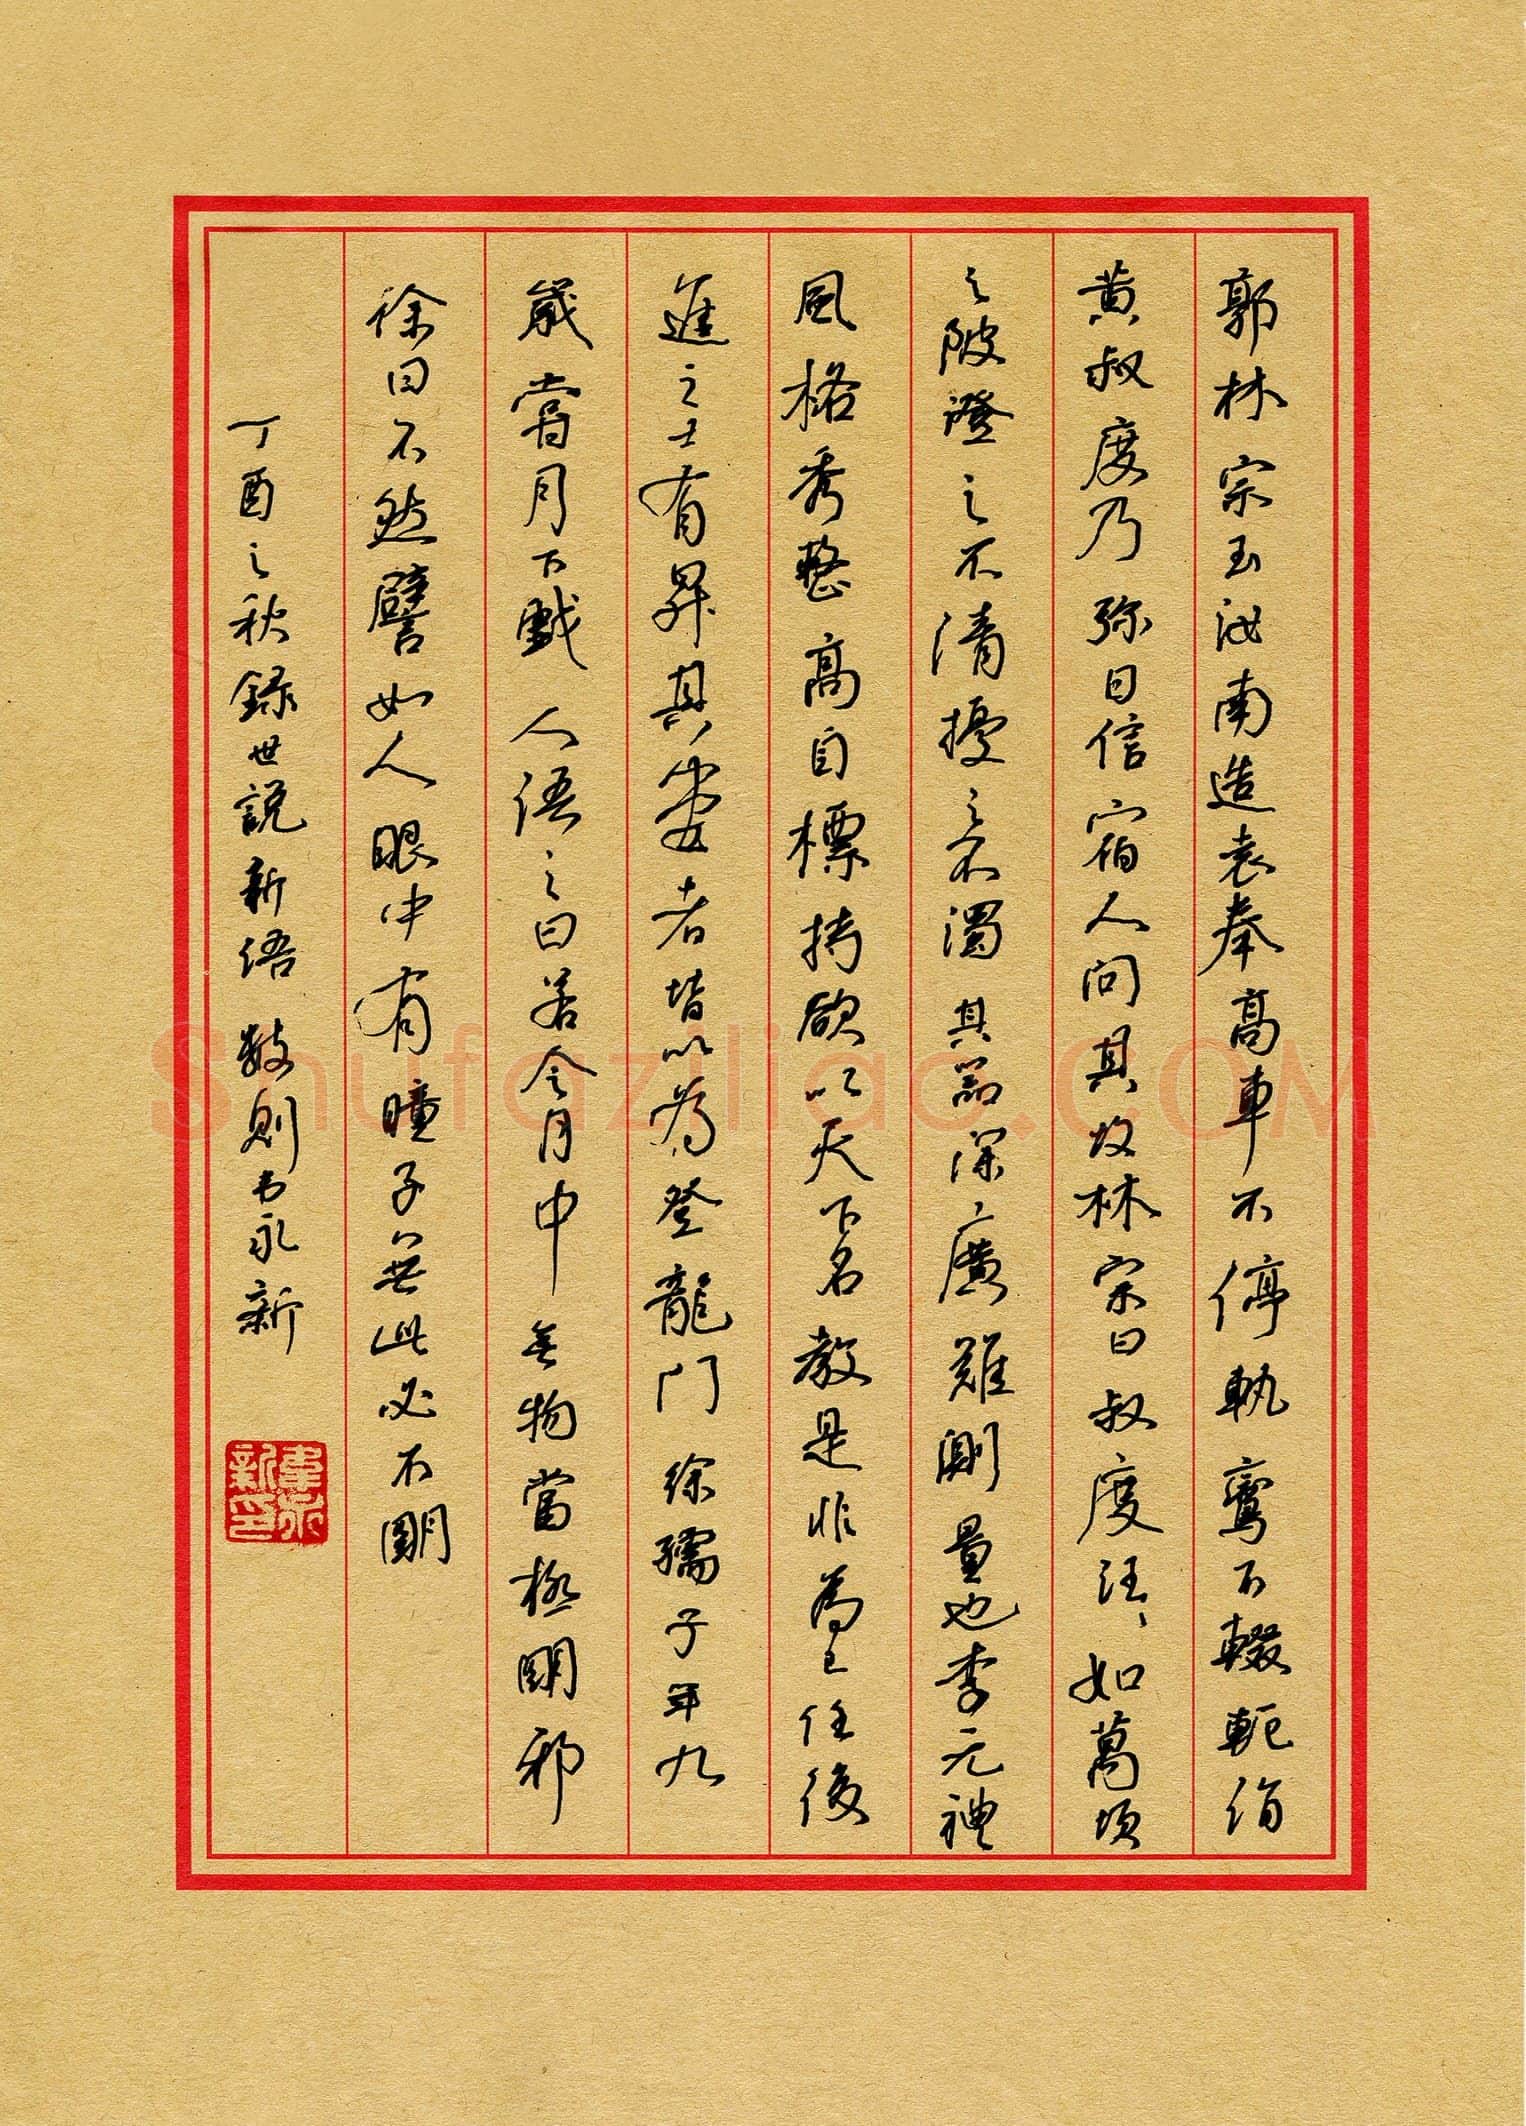 郭林宗至汝南造袁奉高車不停軌鸞不輟軛詣
黄叔度乃弥日信宿人問其故林宗曰叔度汪汪如萬頃
之陂澄之不清擾之不濁其器深廣難測量也李元禮
風格秀整高自標持欲以天下名教是非為己任後
進之士有昇其堂者皆以為登龍門徐孺子年九
歲嘗月下戲人語之曰若令月中無物當極明邪
徐曰不然譬如人眼中有瞳子無此必不明
丁酉之秋錄世説新語數則 永新
Shufaziliao.COM